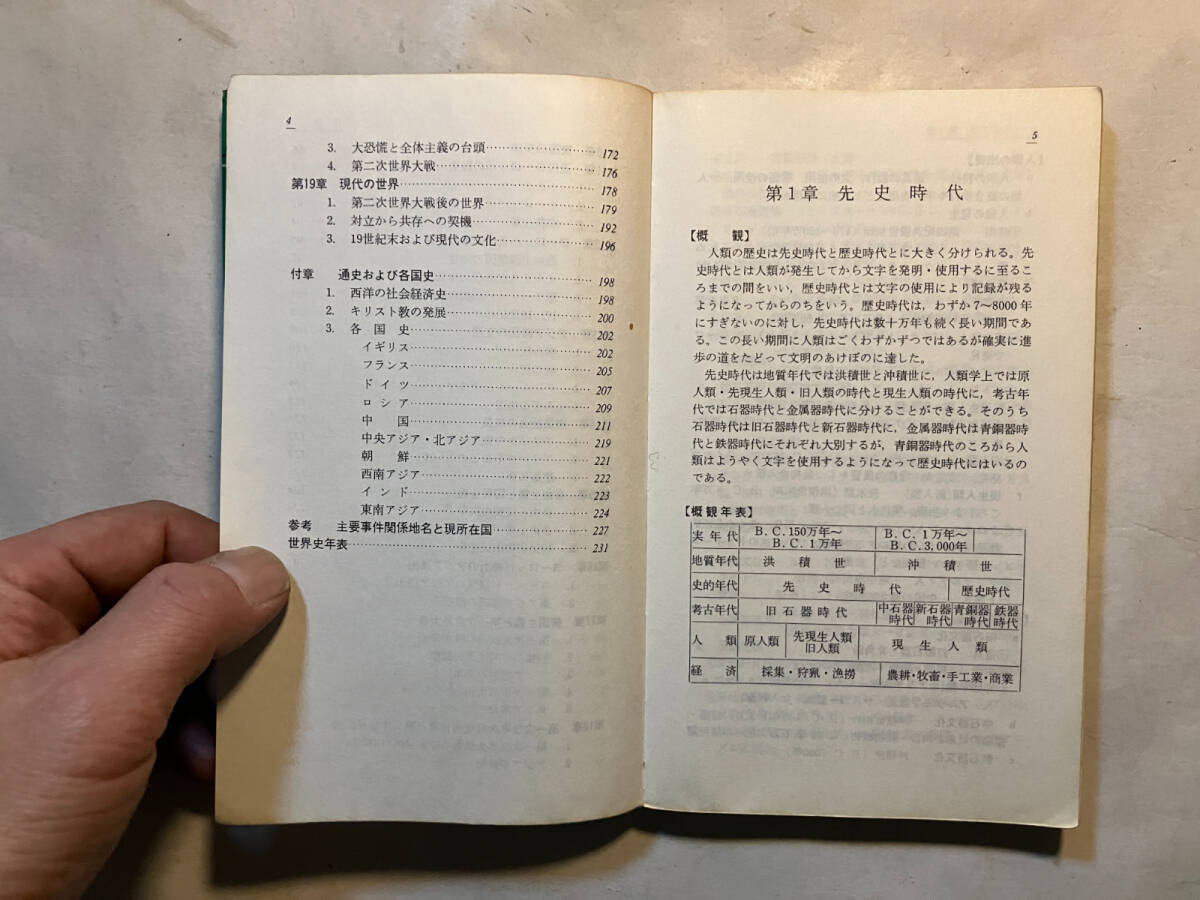 4
3. 大恐慌と全体主義の台頭……………172
4. 第二次世界大戦……………………176
第19章 現代の世界……………………………178
1. 第二次世界大戦後の世界……………179
2. 対立から共存への契機………………192
3. 19世紀末および現代の文化…………196
付章 通史および各国史………………………198
1. 西洋の社会経済史……………………198
2. キリスト教の発展……………………200
3. 各国史…………………………………202
イギリス…………………………………202
フランス…………………………………205
ドイツ……………………………………207
ロシア……………………………………209
中国………………………………………211
中央アジア・北アジア…………………219
朝鮮………………………………………221
西南アジア………………………………222
インド……………………………………223
東南アジア………………………………224
参考 主要事件関係地名と現所在国……………227
世界史年表………………………………………231
5
第1章 先史時代
【概観】
人類の歴史は先史時代と歴史時代とに大きく分けられる。先
史時代とは人類が発生してから文字を発明・使用するに至るこ
ろまでの間をいい，歴史時代とは文字の使用により記録が残る
ようになってからのちをいう。歴史時代は，わずか7～8000年
にすぎないのに対し，先史時代は数十万年も続く長い期間であ
る。この長い期間に人類はごくわずかずつではあるが確実に進
歩の道をたどって文明のあけぼのに達した。
先史時代は地質年代では洪積世と沖積世に，人類学上では原
人類・先現生人類・旧人類の時代と現生人類の時代に，考古年
代では石器時代と金属器時代に分けることができる。そのうち
石器時代は旧石器時代と新石器時代に，金属器時代は青銅器時
代と鉄器時代にそれぞれ大別するが，青銅器時代のころから人
類はようやく文字を使用するようになって歴史時代にはいるの
である。
【概観年表】
実年代 B.C.150万年～B.C.1万年 B.C.1万年～B.C.3,000年
地質年代 洪積世 沖積世
史的年代 先史時代 歴史時代
考古年代 旧石器時代 中石器時代 新石器時代 青銅器時代 鉄器時代
人類 原人類 先現生人類 旧人類 現生人類
経済 採集・狩猟・漁撈 農耕・牧畜・手工業・商業